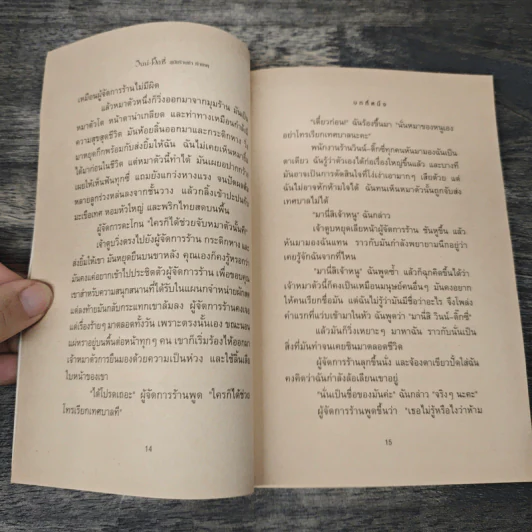 วินน์-ดิ๊กซี่
เหมือนผู้จัดการร้านไม่มีผิด
แล้วหมาตัวหนึ่งก็วิ่งออกมาจากมุมร้าน มันเป็น
หมาตัวโต หน้าตาน่าเกลียด และท่าทางเหมือนกำลังมี
ความสุขสุดชีวิต มันห้อยลิ้นออกมาและกระดิกหาง
มาหยุดกึกพร้อมกับส่งยิ้มให้ฉัน ฉันไม่เคยเห็นหมายิ้ม
ได้มาก่อนในชีวิต แต่หมาตัวนี้ทำได้ มันเผยอปากกว้าง
เผยให้เห็นฟันทุกซี่ แถมยังแกว่งหางแรง จนปัดผลส้ม
หลายลูกร่วงหล่นลงจากชั้นวาง แล้วกลิ้งเข้าปะปนกับ
มะเขือเทศ หอมหัวใหญ่ และพริกไทยสดบนพื้น
ผู้จัดการตะโกน "ใครก็ได้ช่วยจับหมาตัวนั้นที"
เจ้าตูบวิ่งตรงไปยังผู้จัดการร้าน กระดิกหาง และ
ส่งยิ้มให้เขา มันหยุดยืนบนขาหลัง คุณเองก็คงรู้หรอกว่า
มันคงแค่อยากเข้าไปประชิดตัวผู้จัดการร้าน เพื่อขอบคุณ
เขาสำหรับความสนุกสนานที่ได้รับในแผนกจำหน่ายผัก
แต่ลงท้ายมันกลับกระแทกเขาล้มลง ผู้จัดการร้านคง
แต่เรื่องร้ายๆ มาตลอดทั้งวัน เพราะตรงนั้นเอง ขณะนอน
แผ่หราอยู่บนพื้นต่อหน้าทุกๆ คน เขาก็เริ่มร้องไห้ออกมา
เจ้าหมาตัวการยืนมองด้วยความเป็นห่วง และใช้ลิ้นเลีย
ใบหน้าของเขา
"ได้โปรดเถอะ" ผู้จัดการร้านพูด "ใครก็ได้ช่วย
โทรเรียกเทศบาลที"
14
บทที่หนึ่ง
"เดี๋ยวก่อน!" ฉันร้องขึ้นมา "นั่นหมาของหนูเอง
อย่าโทรเรียกเทศบาลนะคะ"
พนักงานร้านวินน์-ดิ๊กซี่ทุกคนหันมามองฉันเป็น
ตาเดียว ฉันรู้ว่าตัวเองได้ก่อเรื่องใหญ่ขึ้นแล้ว และบางที
มันอาจเป็นการตัดสินใจที่โง่เง่าเอามากๆ เสียด้วย แต่
ฉันไม่อาจหักห้ามใจได้ ฉันทนเห็นหมาตัวนั้นถูกจับส่ง
เทศบาลไม่ได้
"มานี่สิเจ้าหนู" ฉันกล่าว
เจ้าตูบหยุดเลียหน้าผู้จัดการร้าน ชันหูขึ้น แล้ว
หันมามองฉันแทน ราวกับมันกำลังพยายามนึกอยู่ว่า
เคยรู้จักฉันจากที่ไหน
"มานี่สิเจ้าหนู" ฉันพูดซ้ำ แล้วก็ฉุกคิดขึ้นได้ว่า
เจ้าหมาตัวนี้ก็คงเป็นเหมือนมนุษย์คนอื่นๆ มันคงอยาก
ให้คนเรียกชื่อมัน แต่ฉันไม่รู้ว่ามันมีชื่อว่าอะไร จึงโพล่ง
คำแรกที่แวบเข้ามาในหัว ฉันพูดว่า "มานี่สิ วินน์-ดิ๊กซี่"
แล้วมันก็วิ่งเหยาะๆ มาหาฉัน ราวกับนั่นเป็น
สิ่งที่มันทำจนเคยชินมาตลอดชีวิต
ผู้จัดการร้านลุกขึ้นนั่ง และจ้องตาเขียวปั้ดใส่ฉัน
คงคิดว่าฉันกำลังล้อเลียนเขาอยู่
"นั่นเป็นชื่อของมันค่ะ" ฉันกล่าว "จริงๆ นะคะ"
ผู้จัดการร้านพูดขึ้นว่า "เธอไม่รู้หรือไงว่าห้าม
15